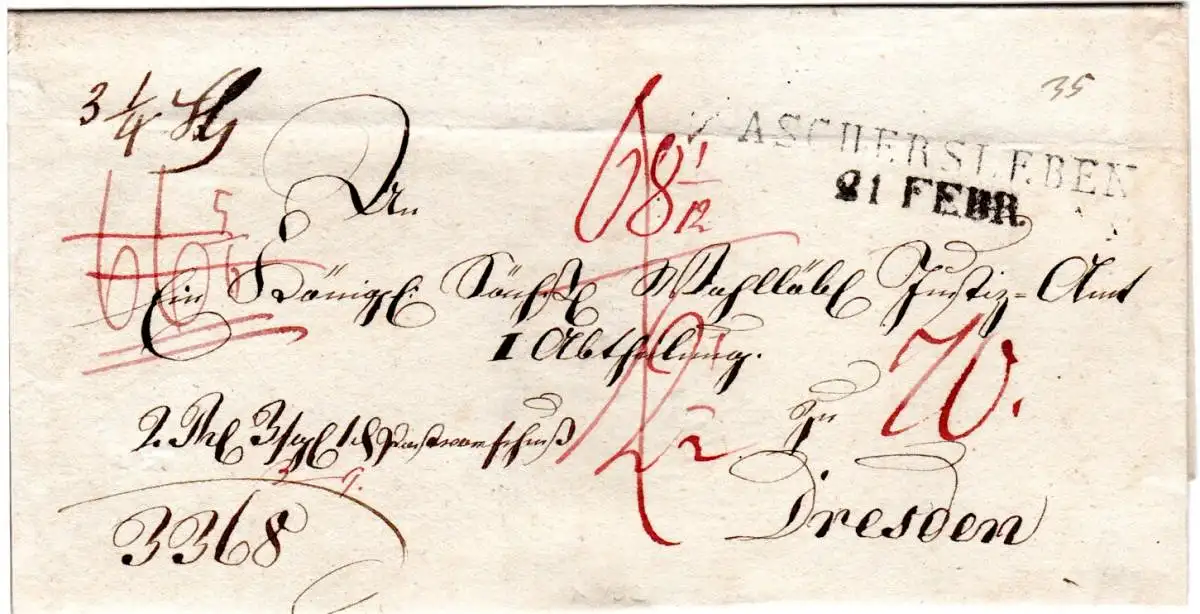 35
3 1/4 Lth
ASCHERSLEBEN
21 FEBR.
An
68 1/12
Ein Königl. Sächs. Wohllöbl Justiz-Amt
I Abtheilung.
70.
zu
2. Thl 3 sgl 1 d Postvorschuß
Dresden
3368